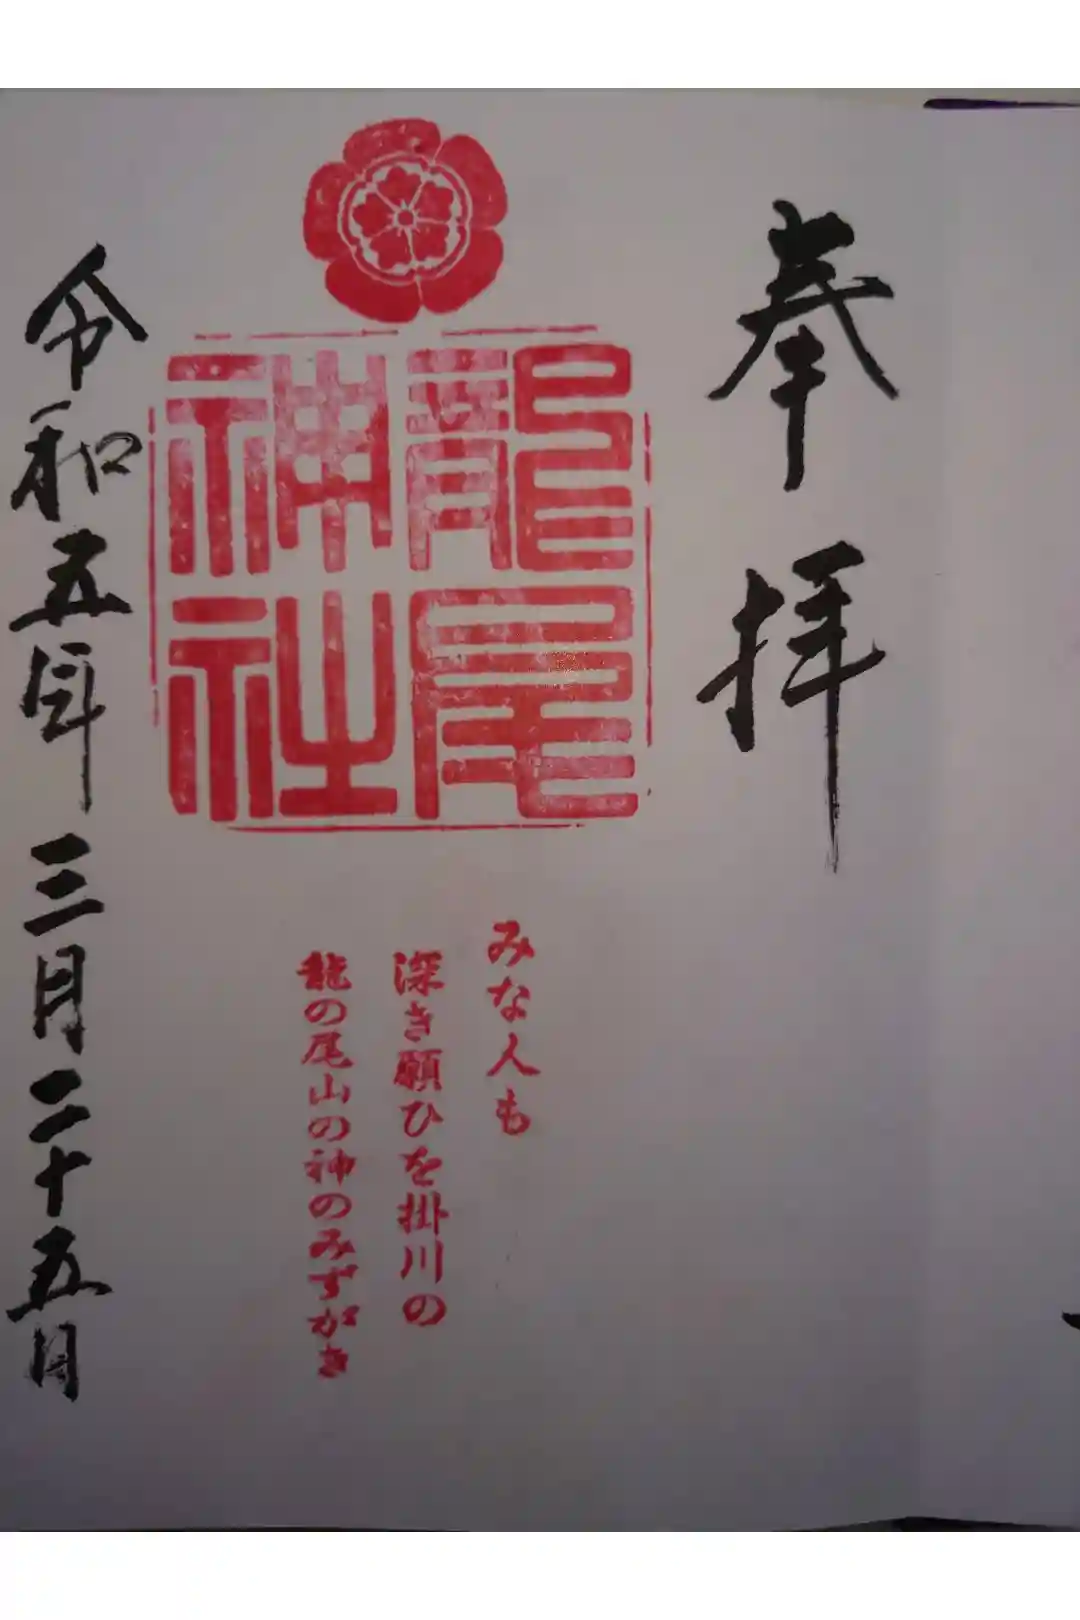 奉拝
龍尾
神社
みな人も
深き願ひを掛川の
龍の尾山の神のみずがき
令和五年三月二十五日